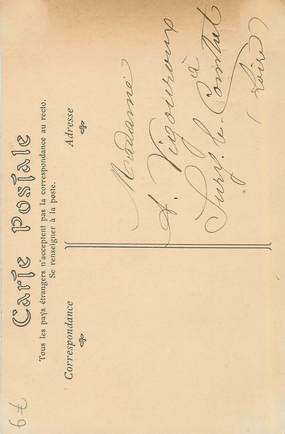 Carte Postale
Tous les pays étrangers n'acceptent pas la correspondance au recto.
Se renseigner à la poste.
Correspondance
Adresse
Madame
A. Vigouroux
à
Sury-le-Comtal
(Loire)
6€